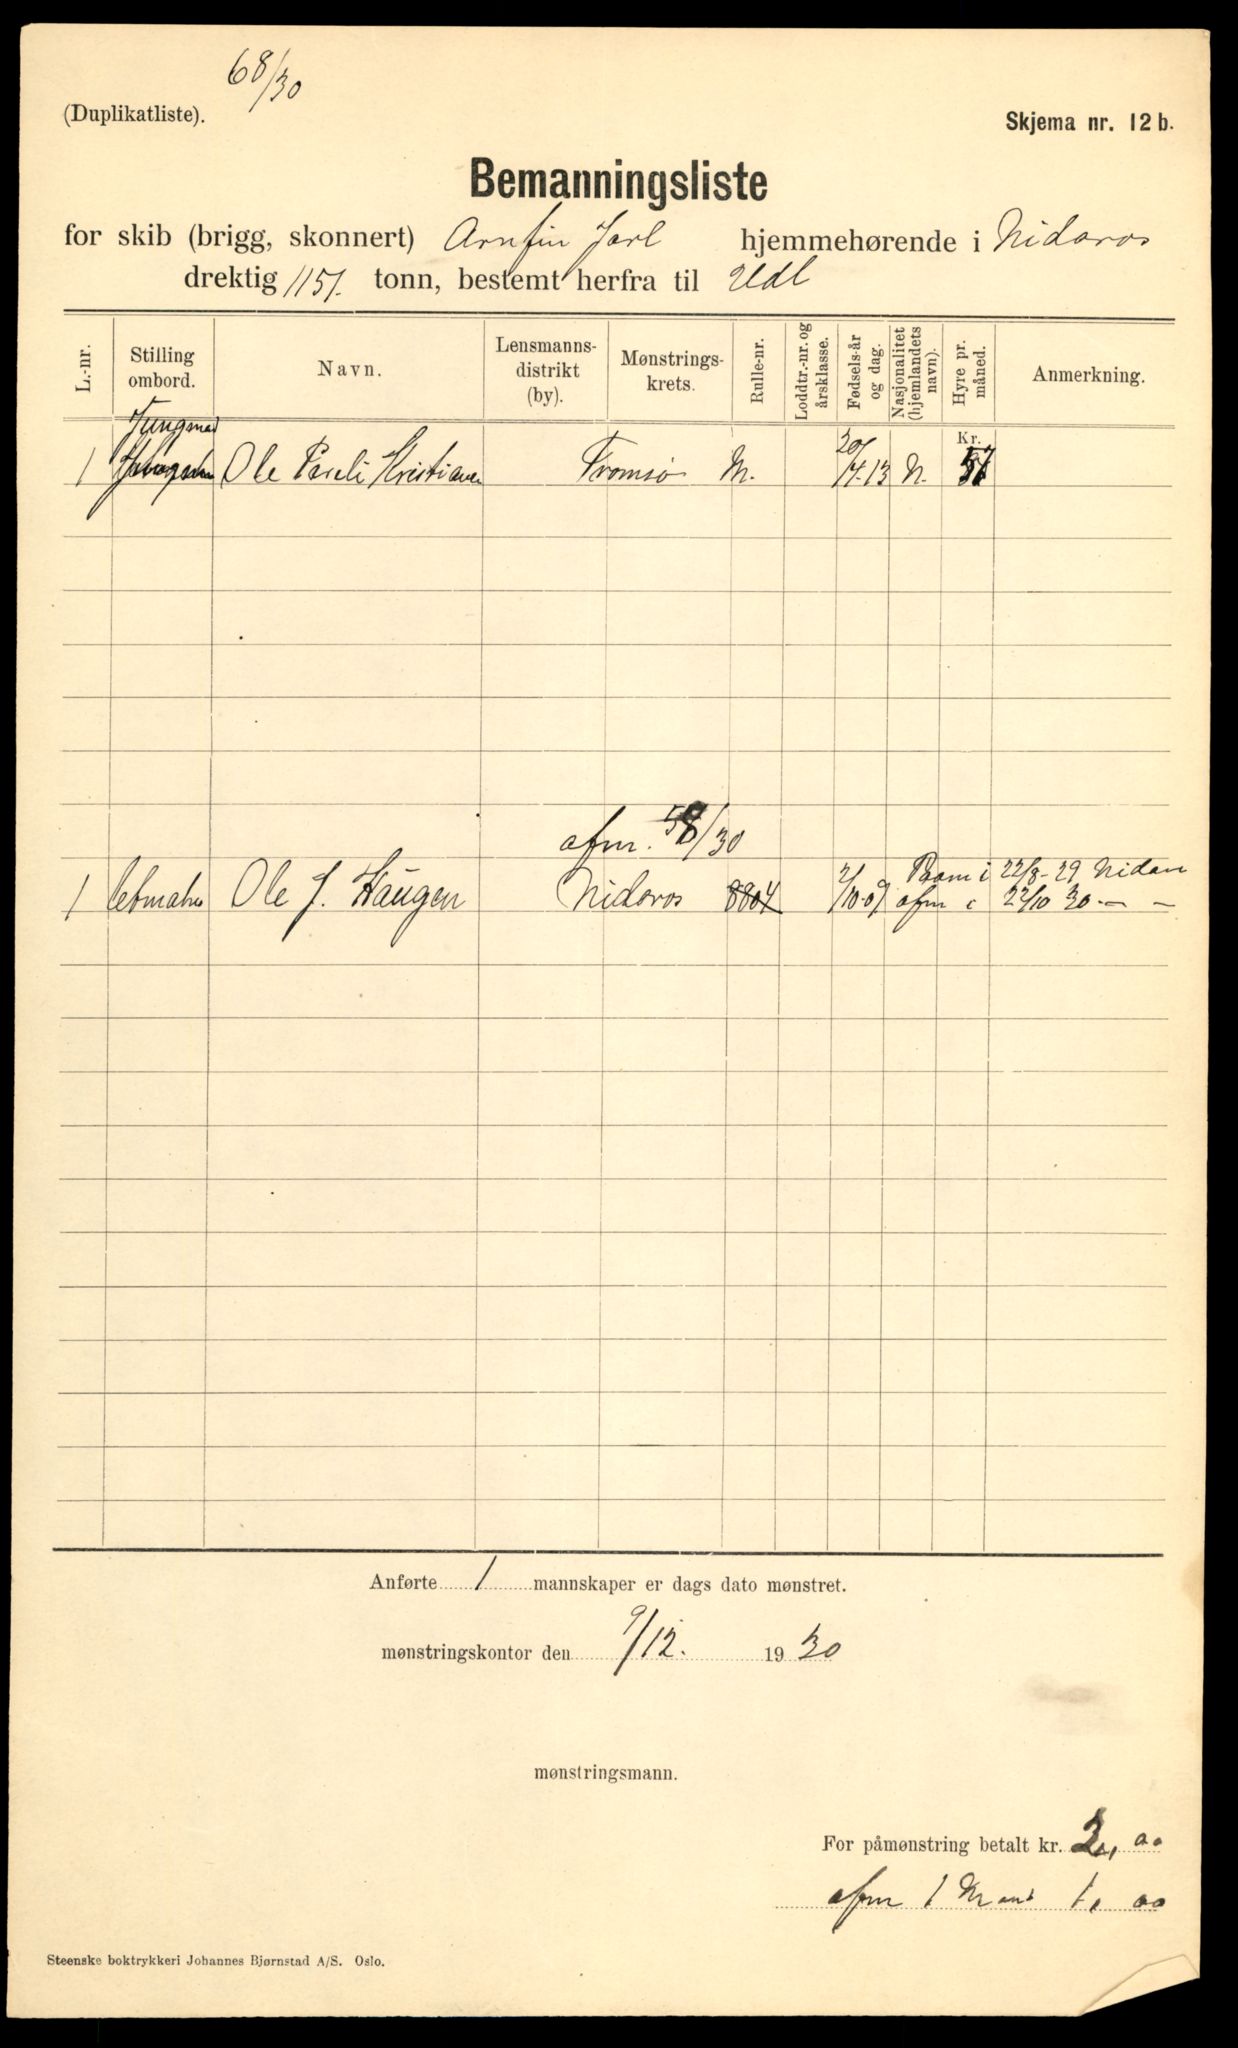 68/30
(Duplikatliste).
Skjema nr. 12 b.
Bemanningsliste
for skib (brigg, skonnert) Arnfin Jarl hjemmehørende i Nidaros
drektig 1151. tonn, bestemt herfra til Udl
L.-nr. Stilling ombord. Navn. Lensmanns-distrikt (by). Mønstrings-krets. Rulle-nr. Loddtr.-nr. og årsklasse. Fødsels-år og dag. Nasjonalitet (hjemlandets navn). Hyre pr. måned. Anmerkning.
Kr.
Jungmad
1 Ole Pareli Kristiansen Tromsø M. 20/4-13 N. 57
afm. 58/30
1 Letmatros Ole J. Haugen Nidaros 8804 2/10-09 Paam i 22/8-29 Nidaros
afm i 22/10 30 — —
Anførte 1 mannskaper er dags dato mønstret.
mønstringskontor den 9/12. 1930
mønstringsmann.
For påmønstring betalt kr. 2,00
afm 1 Mand 1,00
Steenske boktrykkeri Johannes Bjørnstad A/S. Oslo.